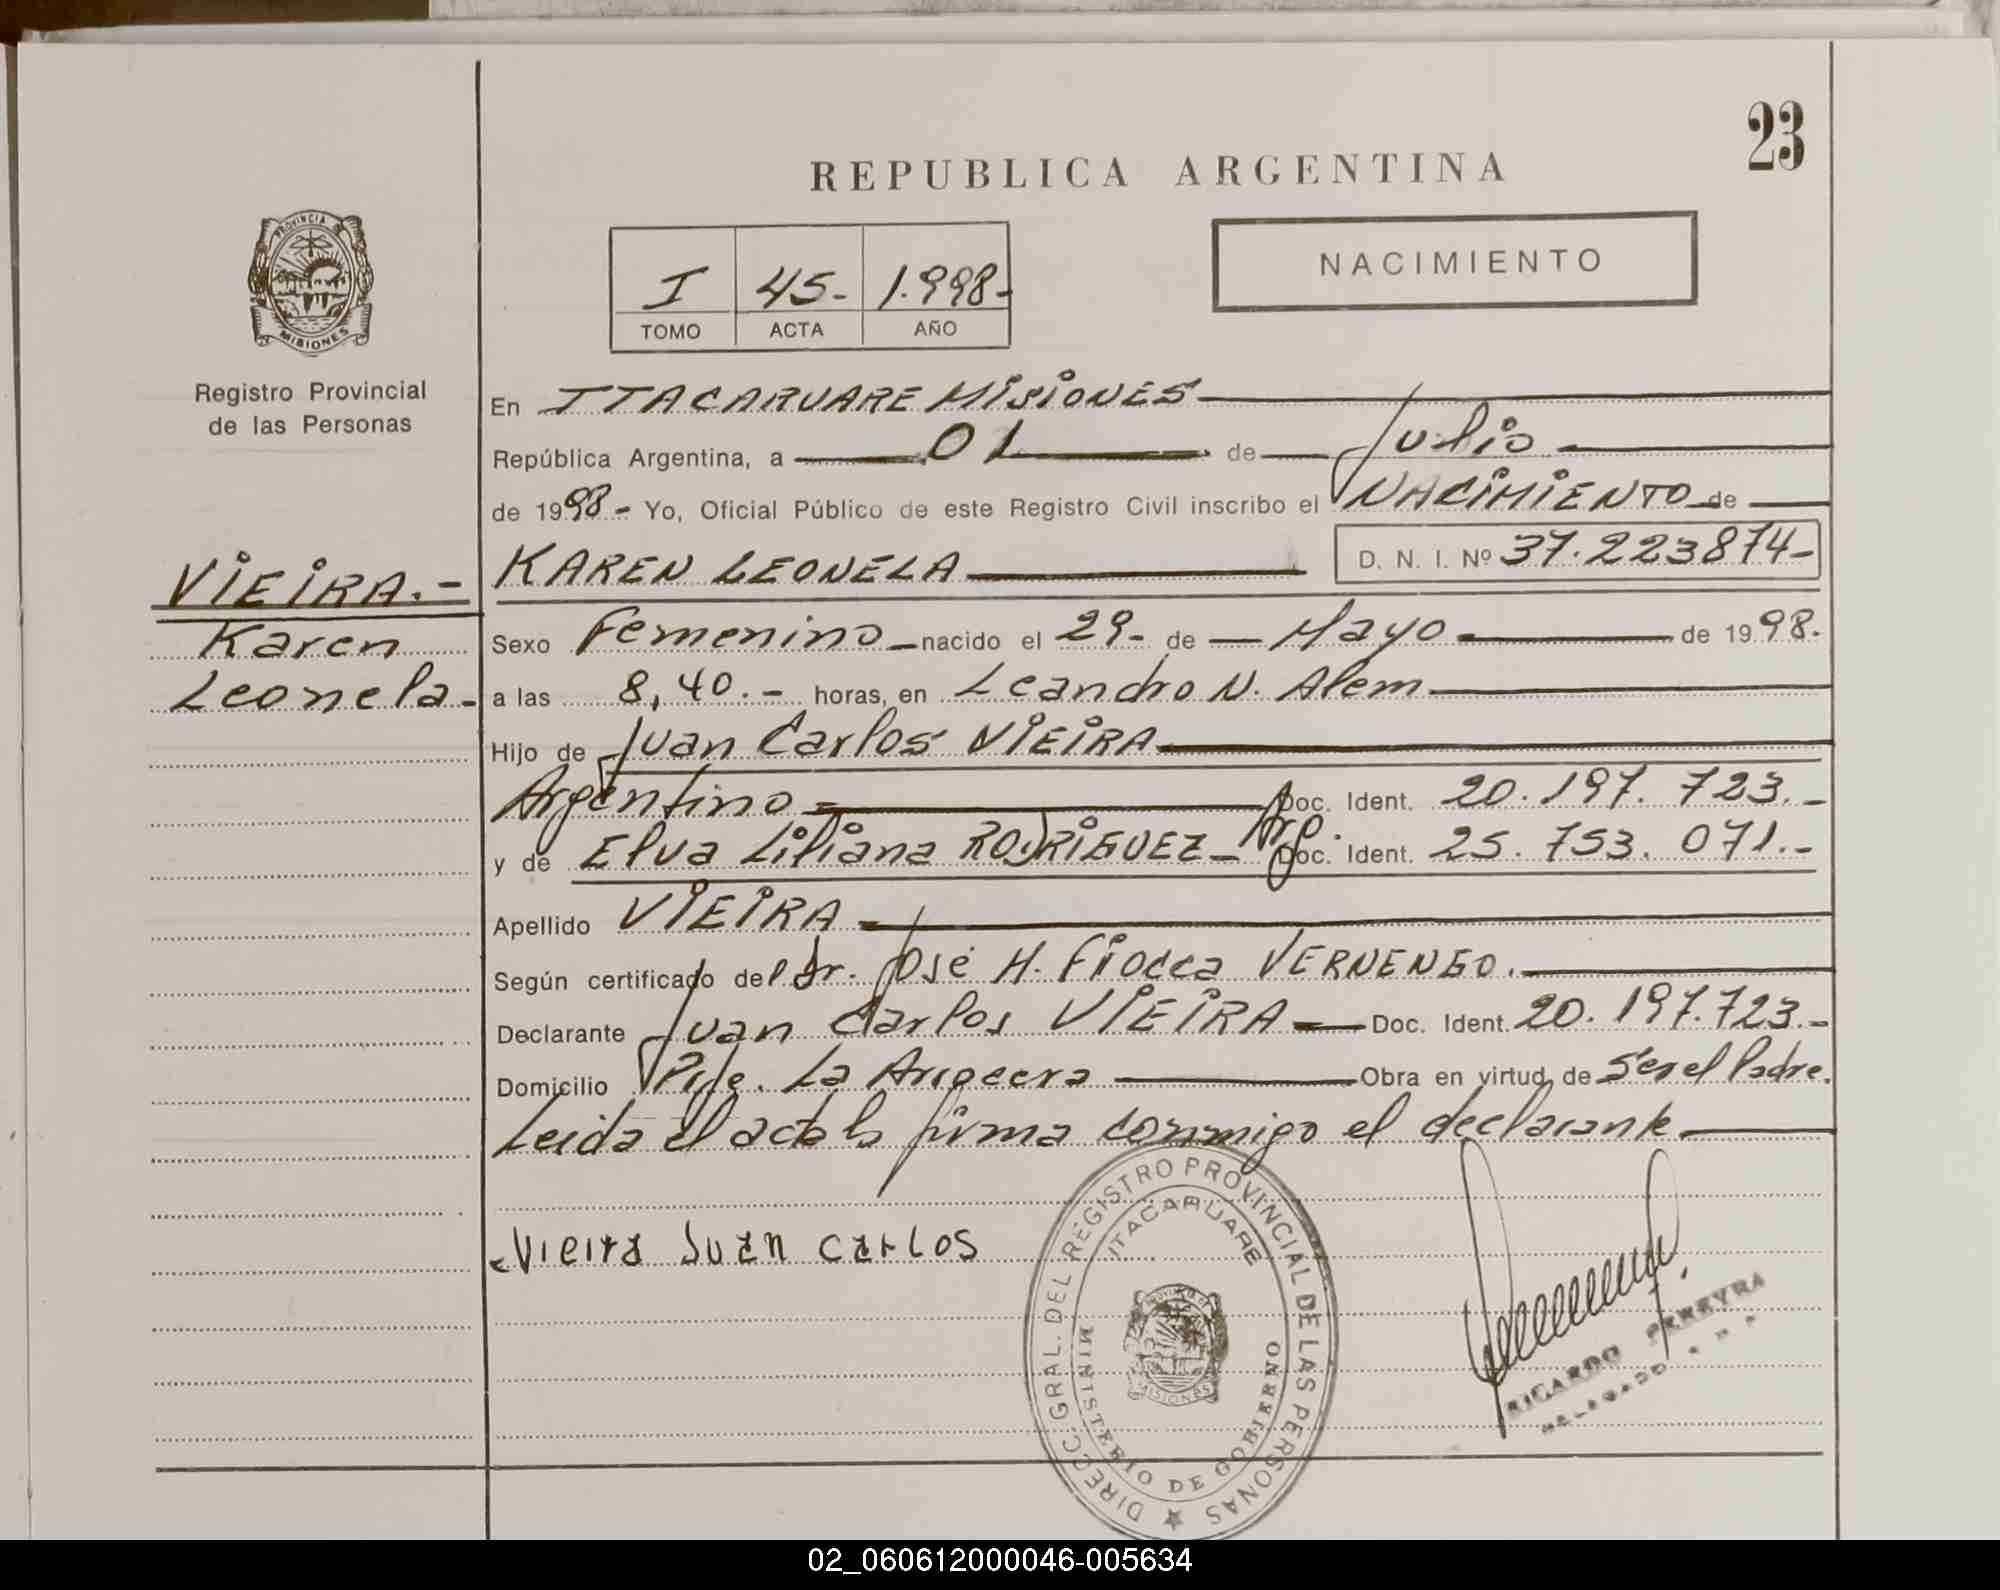 23
REPUBLICA ARGENTINA
PROVINCIA DE
MISIONES
Registro Provincial
de las Personas
NACIMIENTO
I 45- 1.998-
TOMO ACTA AÑO
En ITACARUARE MISIONES
República Argentina, a 01 de Julio
de 1998- Yo, Oficial Público de este Registro Civil inscribo el NACIMIENTO de
KAREN LEONELA D. N. I. Nº 37.223874-
VIEIRA.-
Karen
Leonela-
Sexo Femenino nacido el 29- de Mayo de 1998.
a las 8,40.- horas, en Leandro N. Alem
Hijo de Juan Carlos VIEIRA
Argentino Doc. Ident. 20.197.723.-
y de Elva Liliana RODRIGUEZ- Arg. Doc. Ident. 25.753.071.-
Apellido VIEIRA
Según certificado del Dr. José H. Fiocca VERNENGO.
Declarante Juan Carlos VIEIRA Doc. Ident. 20.197.723.-
Domicilio Pje. La Obra en virtud de Ser el Padre.
Leida el acta la firma conmigo el declarante
Vieira Juan Carlos
DIRECC. GRAL. DEL REGISTRO PROVINCIAL DE LAS PERSONAS
ITACARUARE
MINISTERIO DE GOBIERNO
PROVINCIA DE
MISIONES
RICARDO PEREYRA
DELEGADO
02_060612000046-005634